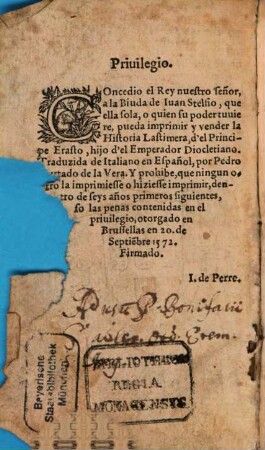 Priuilegio.
COncedio el Rey nuestro señor,
a la Biuda de Iuan Stelsio, que
ella sola, o quien su poder tuuie
re, pueda imprimir y vender la
Historia Lastimera, d'el Princi
pe Erasto, hijo d'el Emperador Diocletiano.
Traduzida de Italiano en Español, por Pedro
rtado de la Vera. Y prohibe, que ningun o-
ro la imprimiesse o hiziesse imprimir, den-
tro de seys años primeros siguientes,
so las penas contenidas en el
priuilegio, otorgado en
Brussellas en 20. de
Septiẽbre 1572.
Firmado.
I. de Perre.
Bonifacii
Bayerische
Staatsbibliothek
München
BIBLIOTHECA
REGIA
MONACENSIS